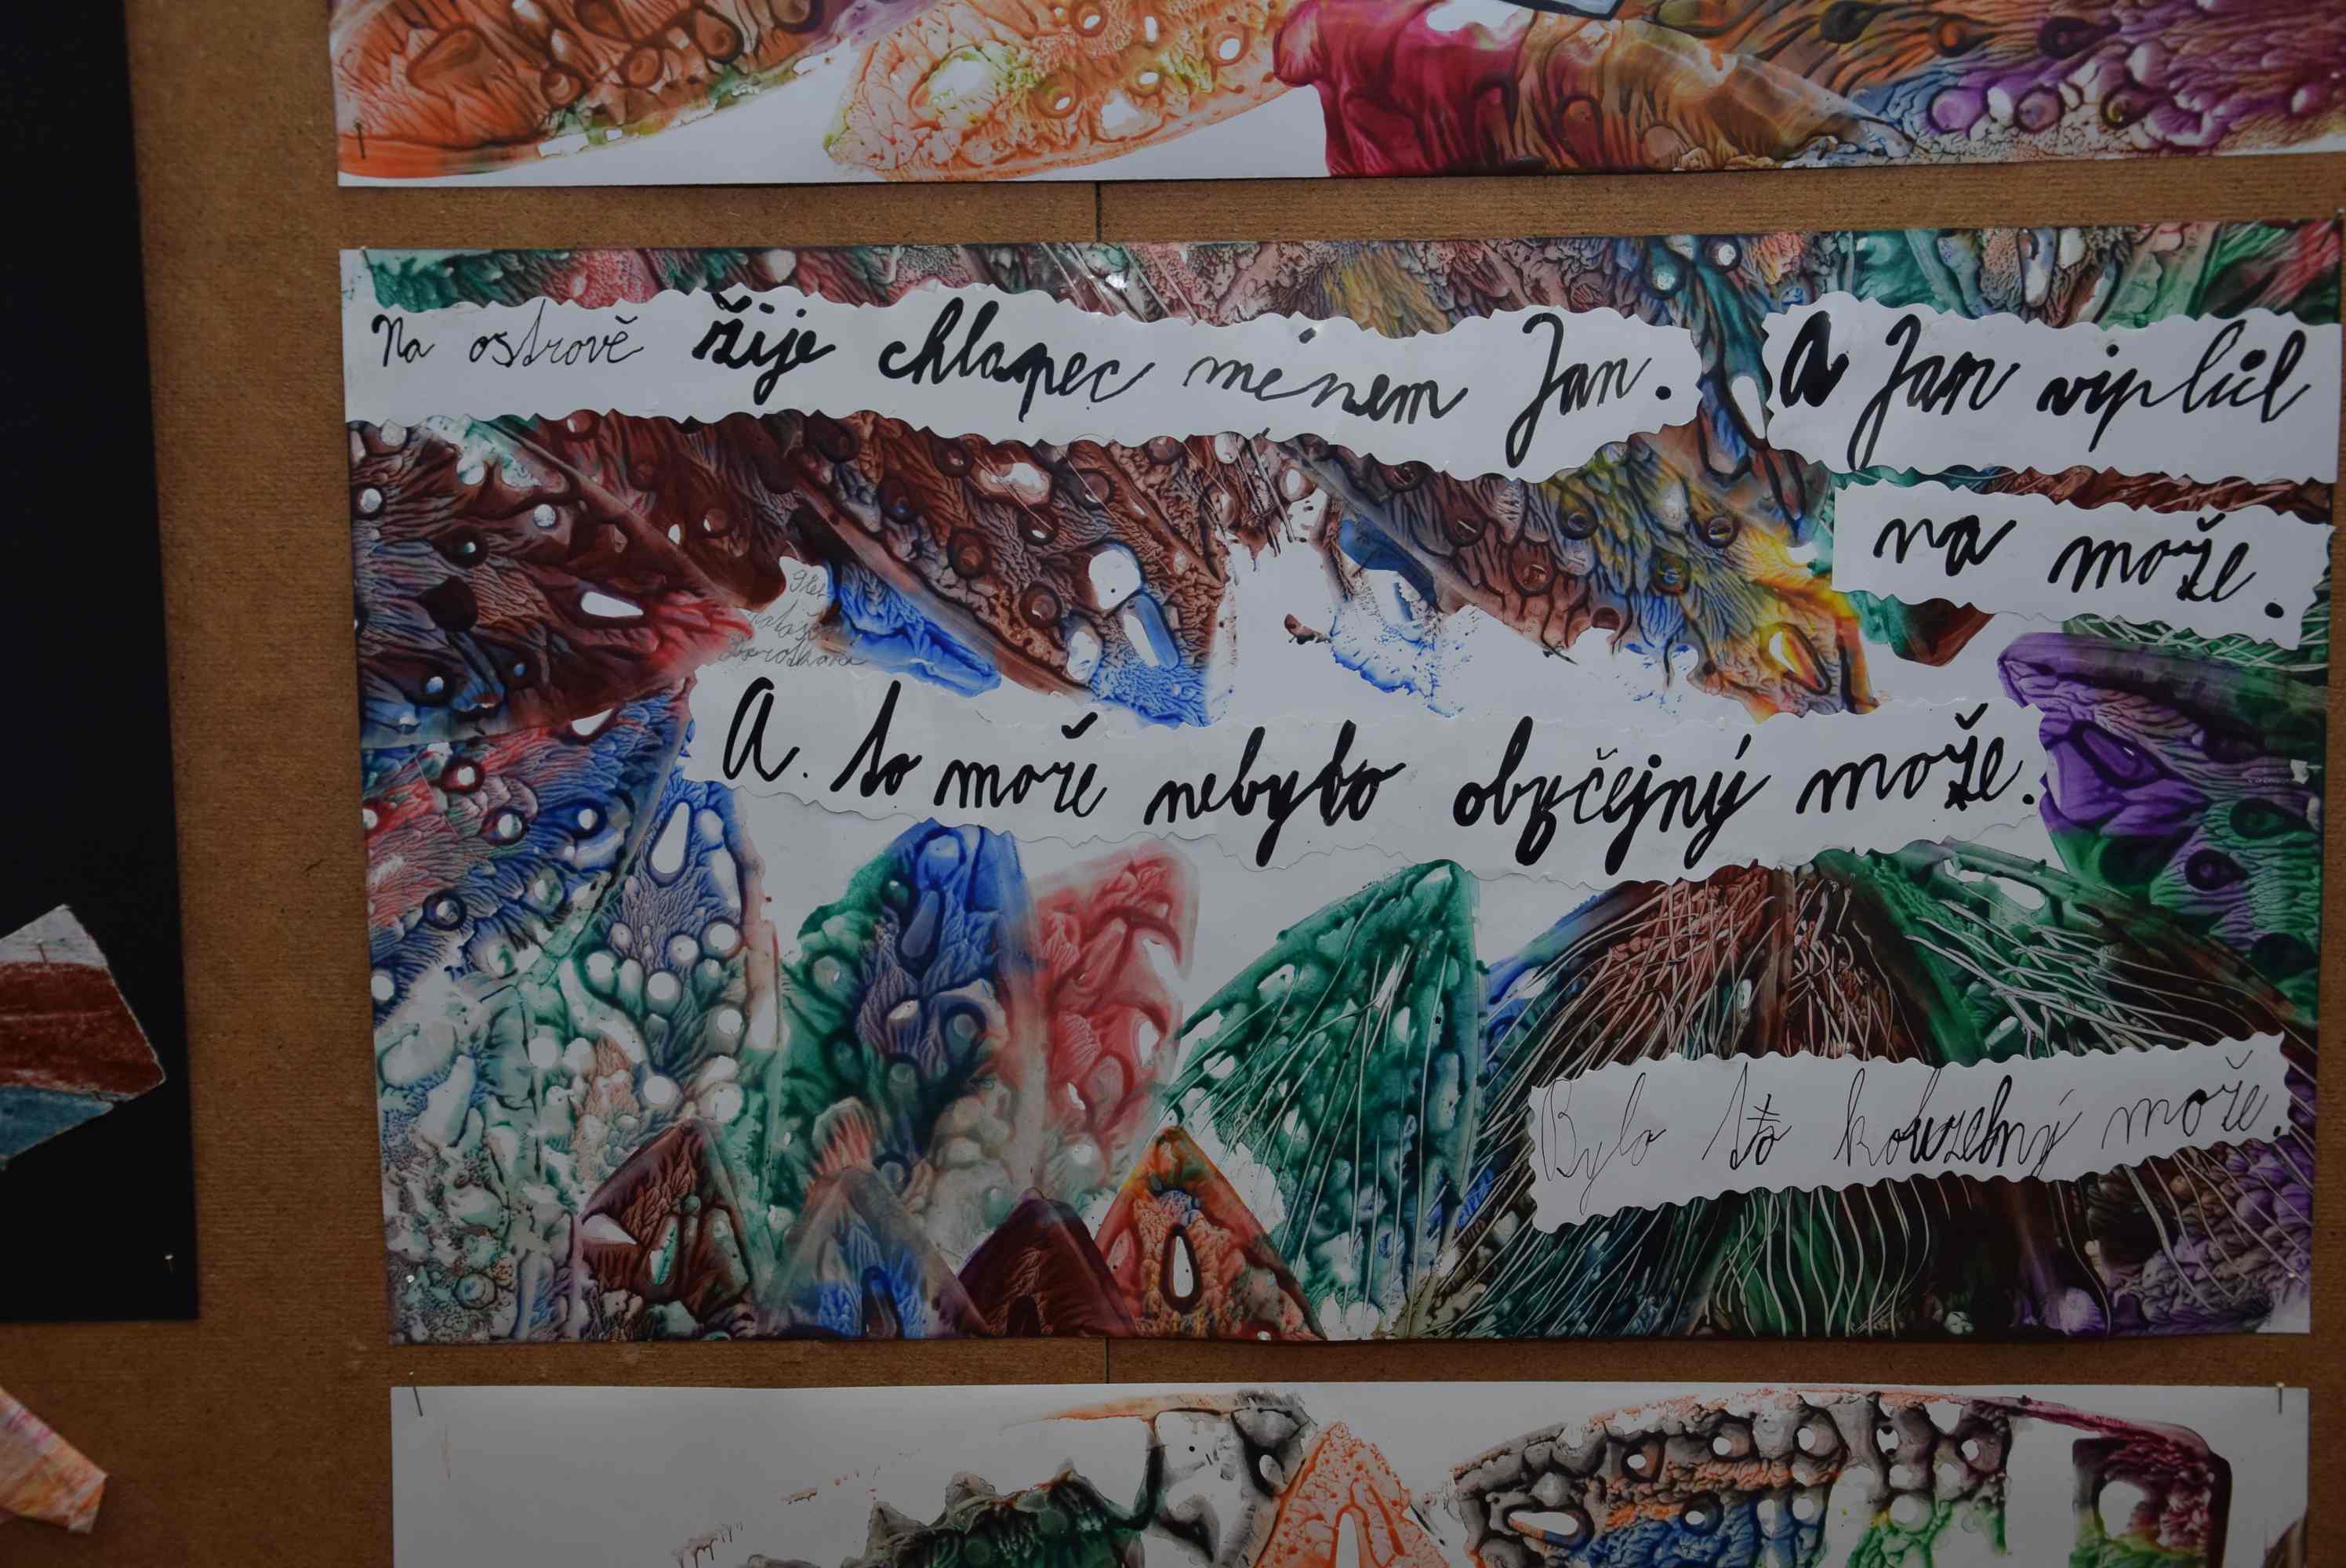 Na ostrově žije chlapec ménem Jan.
A Jan viplul
na moře.
A. to moře nebylo obyčejný moře.
Bylo to kouzelný moře.